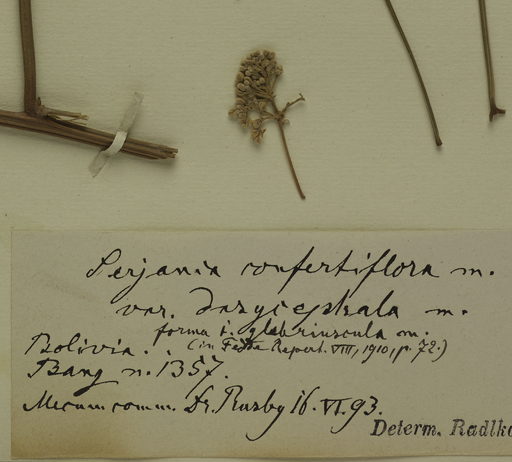 Serjania confertiflora m.
var. dasycephala m.
forma 1. glabriuscula m.
(in Fedde Repert. VIII, 1910, p. 72.)
Bolivia.
Bang n. 1357.
Mecum comm. Dr. Rusby 16. VI. 93.
Determ. Radlko